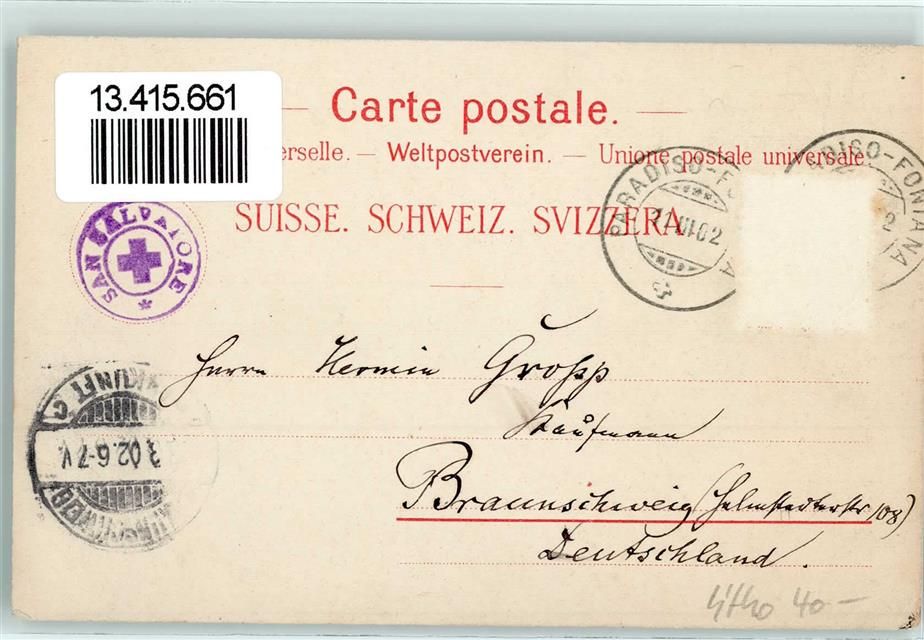 13.415.661
Carte postale.
erselle. — Weltpostverein. — Unione postale universale.
SUISSE. SCHWEIZ. SVIZZERA.
SAN SALVATORE
PARADISO-FO
02
ADISO-FONTANA
2
Herrn Hermin Gropp
Kaufmann
Braunschweig (Helmstedterstr 108)
Deutschland.
KUNFT C
3 02.6-7 V.
UNSCHWEIG
litho 40 —